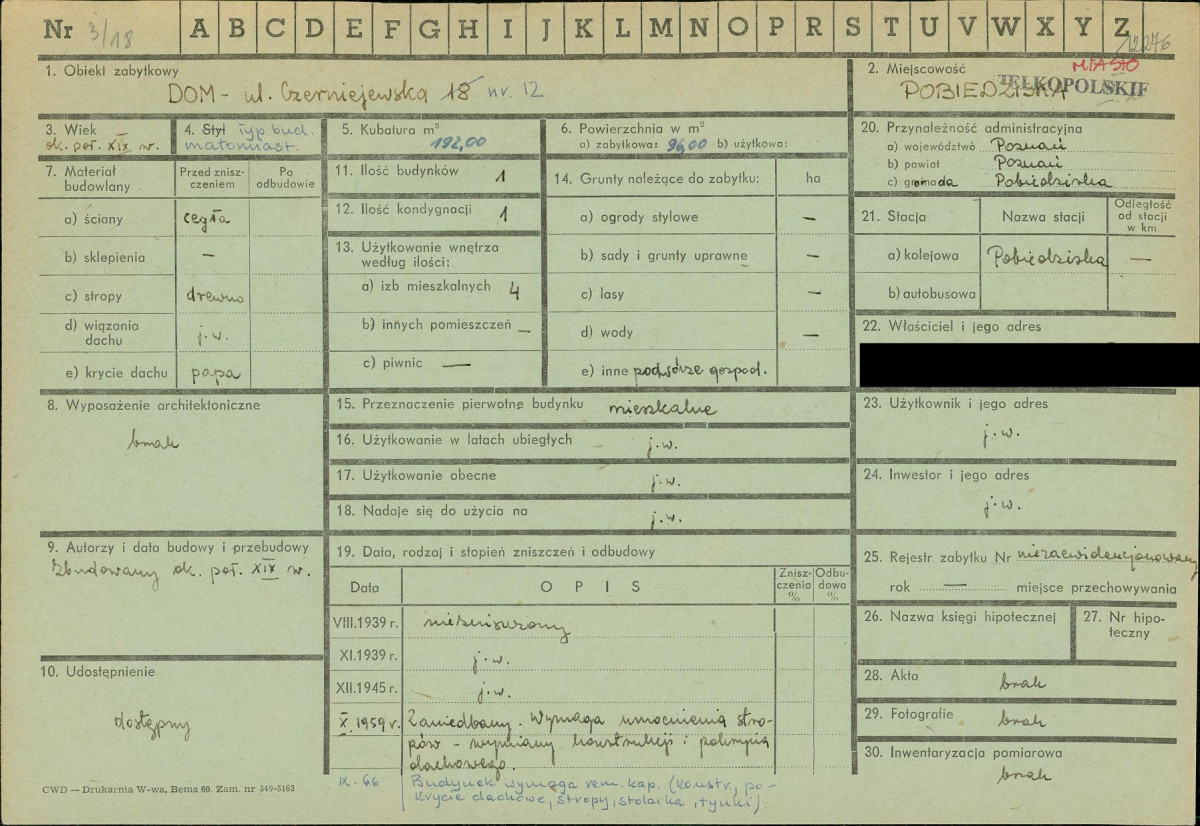 Nr 3/18 A B C D E F G H I J K L M N O P R S T U V W X Y Z
12276
1. Obiekt zabytkowy
DOM - ul. Czerniejewska 18 nr. 12
2. Miejscowość
MIASTO
POBIEDZISKA
3. Wiek
ok. poł. XIX w.
4. Styl typ bud.
małomiast.
5. Kubatura m³
192,00
6. Powierzchnia w m²
a) zabytkowa: 96,00 b) użytkowa:
20. Przynależność administracyjna
a) województwo Poznań
b) powiat Poznań
c) gromada Pobiedziska
7. Materiał budowlany
Przed znisz-
czeniem
Po
odbudowie
a) ściany cegła
b) sklepienia —
c) stropy drewno
d) wiązania
dachu j.w.
e) krycie dachu papa
11. Ilość budynków 1
12. Ilość kondygnacji 1
13. Użytkowanie wnętrza
według ilości:
a) izb mieszkalnych 4
b) innych pomieszczeń —
c) piwnic —
14. Grunty należące do zabytku: ha
a) ogrody stylowe —
b) sady i grunty uprawne —
c) lasy —
d) wody —
e) inne podwórze gospod.
21. Stacja Nazwa stacji
Odległość
od stacji
w km
a) kolejowa Pobiedziska —
b) autobusowa
22. Właściciel i jego adres
8. Wyposażenie architektoniczne
brak
15. Przeznaczenie pierwotne budynku mieszkalne
16. Użytkowanie w latach ubiegłych j.w.
17. Użytkowanie obecne j.w.
18. Nadaje się do użycia na j.w.
23. Użytkownik i jego adres
j.w.
24. Inwestor i jego adres
j.w.
9. Autorzy i data budowy i przebudowy
Zbudowany ok. poł. XIX w.
19. Data, rodzaj i stopień zniszczeń i odbudowy
Data OPIS
Znisz-
czenia
%
Odbu-
dowa
%
VIII.1939 r. niezniszczony
XI.1939 r. j.w.
XII.1945 r. j.w.
X.1959 r. Zaniedbany. Wymaga umocnienia stro-
pów - wymiany konstrukcji i pokrycia
dachowego.
IX. 66 Budynek wymaga rem. kap. (konstr., po-
krycie dachowe, stropy, stolarka, tynki).
25. Rejestr zabytku Nr niezaewidencjonowany
rok — miejsce przechowywania
26. Nazwa księgi hipotecznej
27. Nr hipo-
teczny
10. Udostępnienie
dostępny
28. Akta brak
29. Fotografie brak
30. Inwentaryzacja pomiarowa
brak
CWD — Drukarnia W-wa, Bema 60. Zam. nr 349-5162